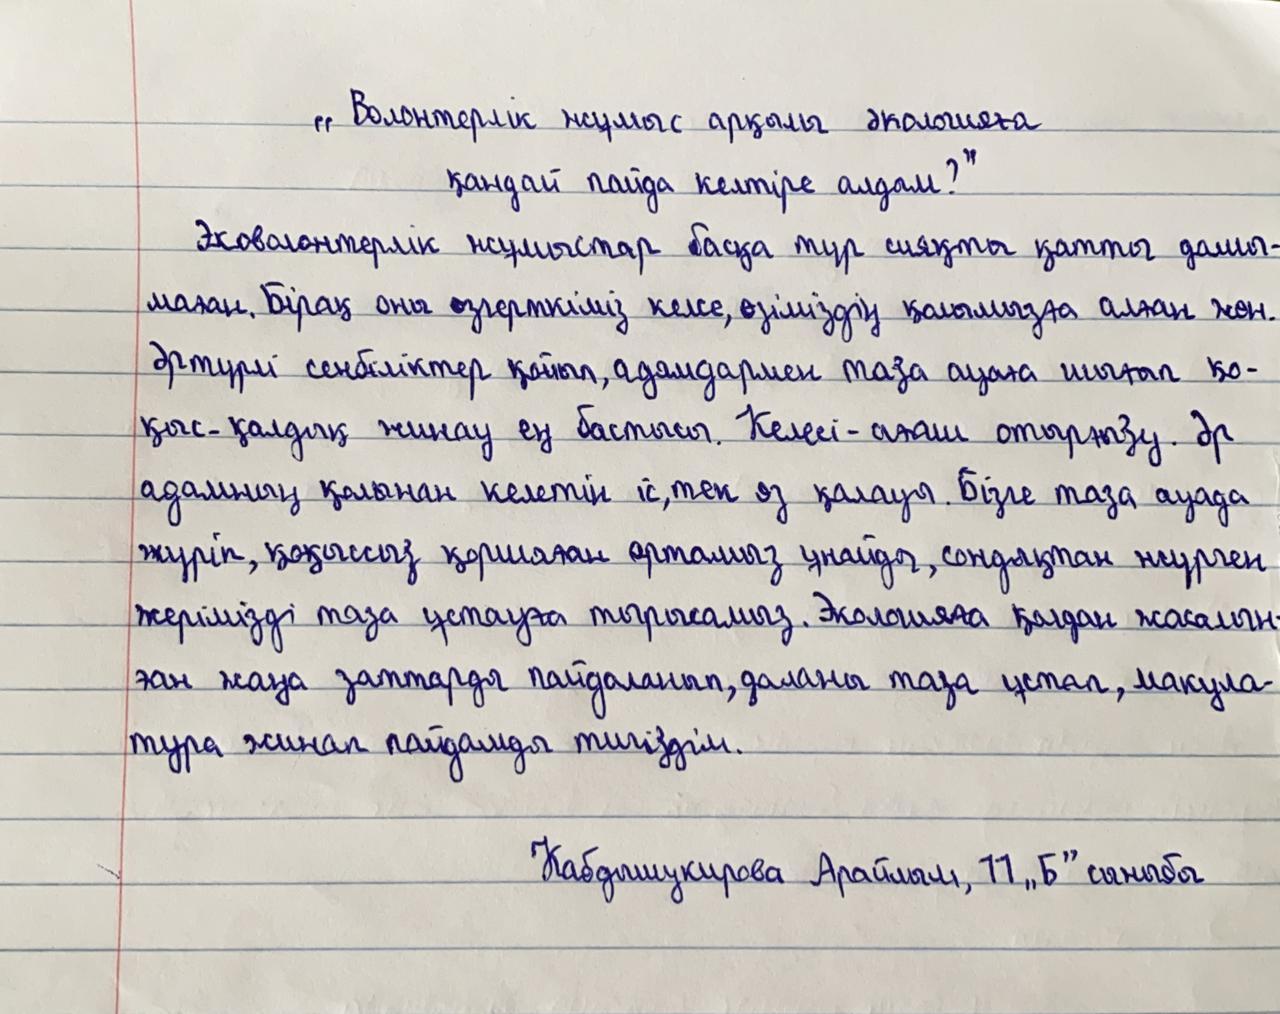 „Волонтерлік жұмыс арқылы экологияға
қандай пайда келтіре алдым?”
Эковолонтерлік жұмыстар басқа түр сияқты қатты дамы-
маған. Бірақ оны өзгерткіміз келсе, өзіміздің қолымызға алған жөн.
Әртүрлі сенбіліктер қойып, адамдармен таза ауаға шығып қо-
қыс-қалдық жинау ең бастысы. Келесі - ағаш отырғызу. Әр
адамның қолынан келетін іс, тек өз қалауы. Бізге таза ауада
жүріп, қоқыссыз қоршаған ортамыз ұнайды, сондықтан жүрген
жерімізді таза ұстауға тырысамыз. Экологияға қолдан жасалын-
ған жаңа заттарды пайдаланып, даланы таза ұстап, макула-
тура жинап пайдамды тигіздім.
Кабдышукирова Арайлым, 11 „Б” сыныбы